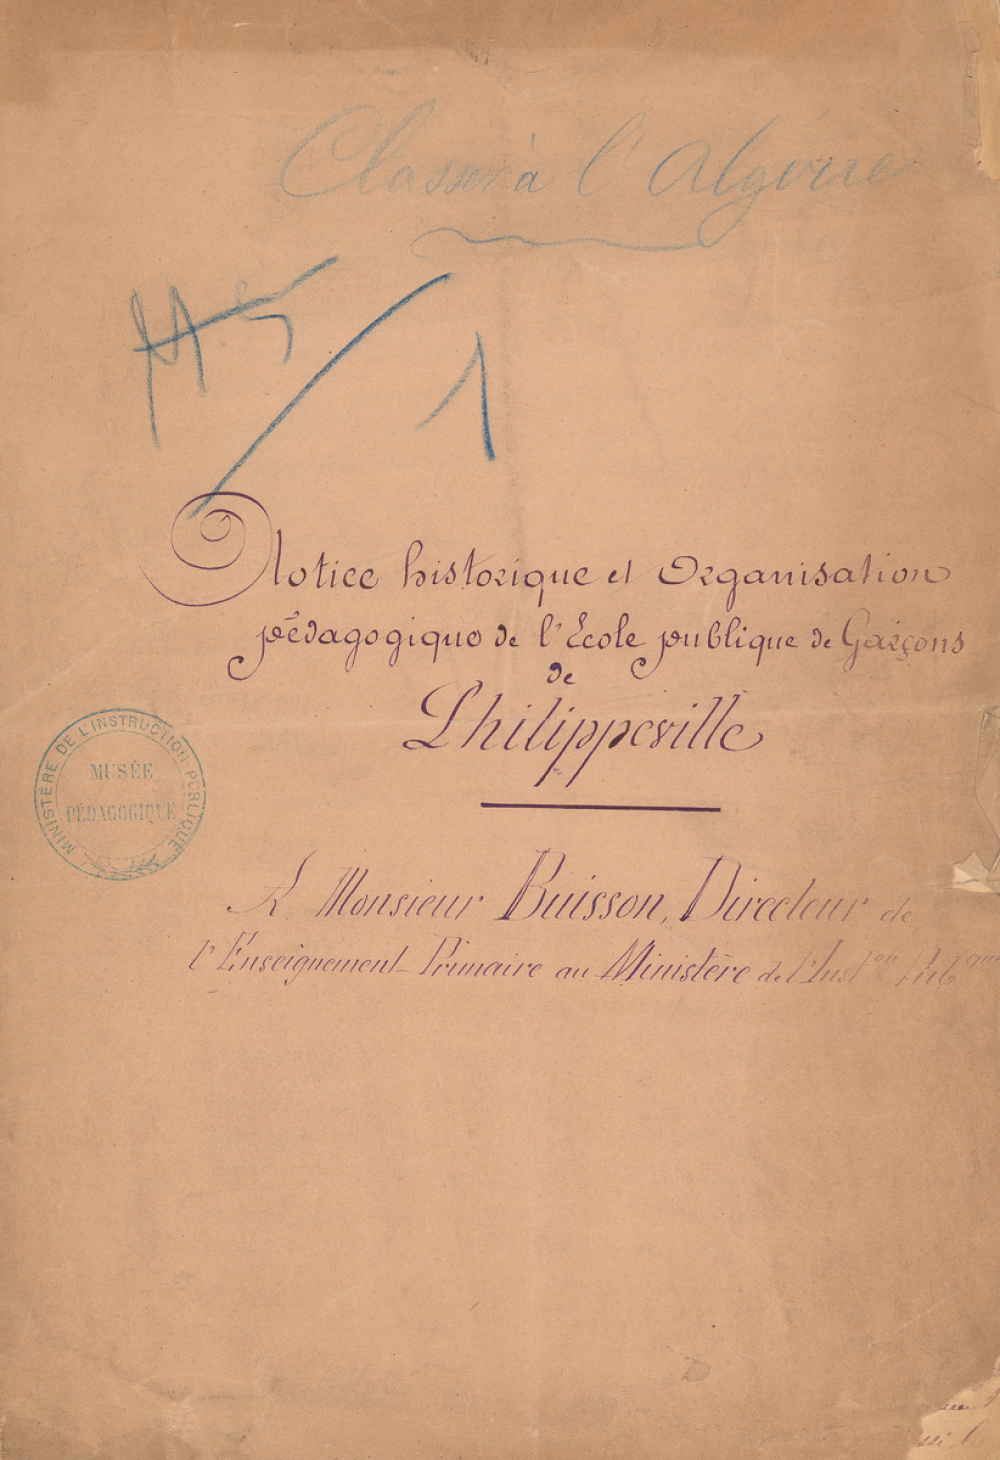 Classer à l'Algérie
1
Notice historique et Organisation
pédagogique de l'École publique de Garçons
de
Philippeville
MINISTÈRE DE L'INSTRUCTION PUBLIQUE
MUSÉE
PÉDAGOGIQUE
A Monsieur Buisson, Directeur de
l'Enseignement Primaire au Ministère de l'Inst^on Pub^que